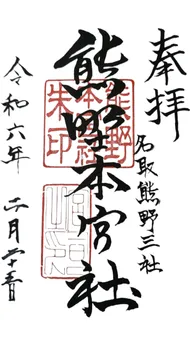 奉拝
名取熊野三社
熊野本宮社
熊野
本宮社
朱印
令和六年 二月二十三日